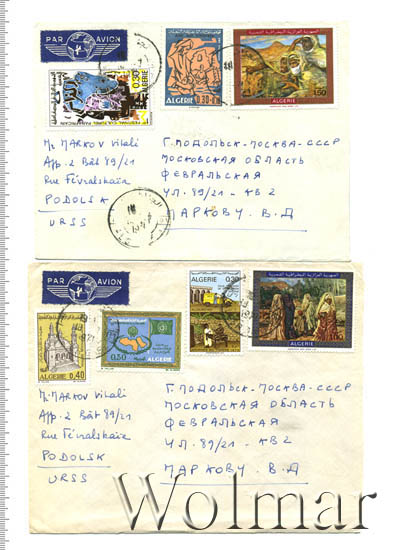 PAR AVION
0.30
ALGERIE
FESTIVAL CULTUREL PANAFRICAIN
ALGERIE 0.30
الجمهورية الجزائرية الديمقراطية الشعبية
1.50
ALGERIE
Mr MARKOV Vitali
App. 2 Bât 89/21
Rue Févralskaïa
PODOLSK
URSS
Г. ПОДОЛЬСК-МОСКВА-СССР
МОСКОВСКАЯ ОБЛАСТЬ
ФЕВРАЛЬСКАЯ
УЛ. 89/21 - КВ 2
МАРКОВУ. В. Д
PAR AVION
ALGERIE 0.40
0.50 ALGERIE
ALGERIE 0.30
الجمهورية الجزائرية الديمقراطية الشعبية
ALGERIE
Mr MARKOV Vitali
App. 2 Bât 89/21
Rue Févralskaïa
PODOLSK
URSS
Г. ПОДОЛЬСК-МОСКВА-СССР
МОСКОВСКАЯ ОБЛАСТЬ
ФЕВРАЛЬСКАЯ
УЛ. 89/21 - КВ 2
МАРКОВУ. В. Д
Wolmar